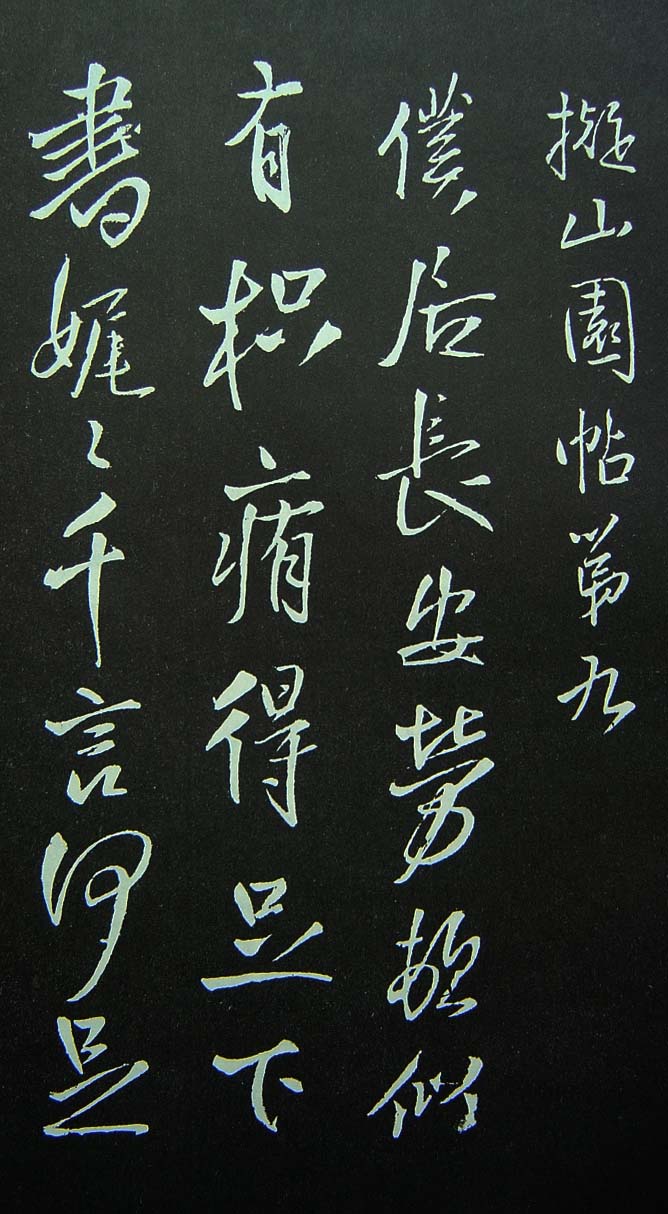 擬山園帖第九
僕居長安勞似
有枳痏得足下
書娓〻千言何足